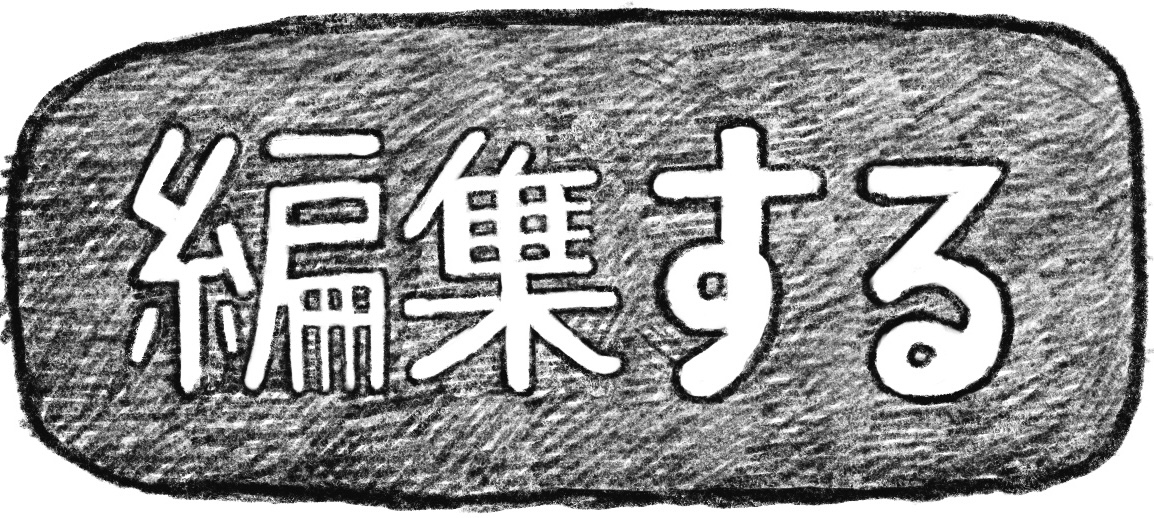 編集する